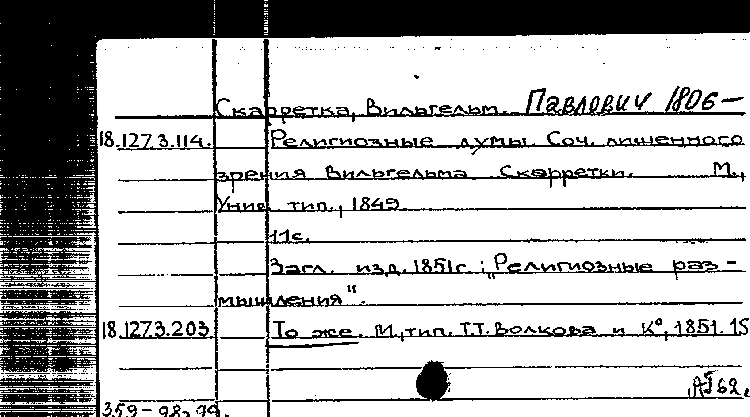 Скарретка, Вильгельм. Павлович 1806—
18.127.3.114. Религиозные думы. Соч. лишенного
зрения Вильгельма Скарретки. М.,
Унив. тип., 1849.
11с.
Загл. изд. 1851г.: „Религиозные раз-
мышления".
18.127.3.203. То же. М., тип. Т.Т. Волкова и К°, 1851. 15
359-98,99.